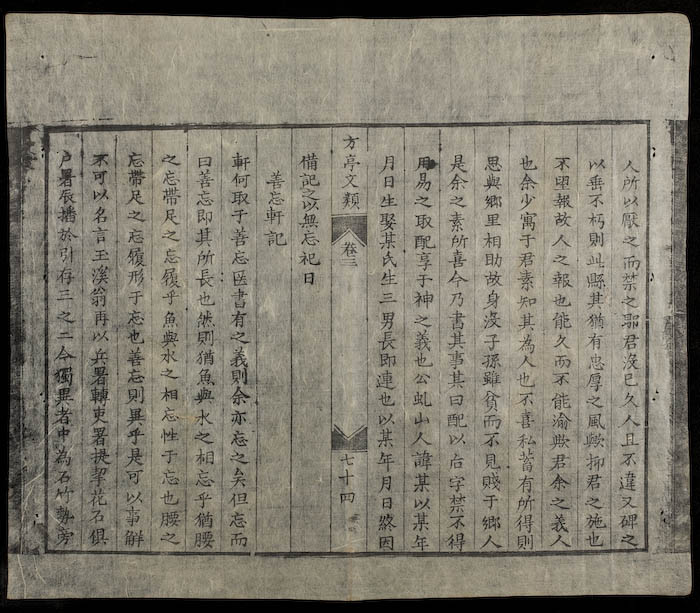 人所以厭之而禁之耶君沒已久人且不違又碑之
以垂不朽則此縣其猶有忠厚之風歟抑君之施也
不望報故人之報也能久而不能渝歟君余之義人
也余少寓于君素知其為人也不善私畜有所得則
思與鄉里相助故身沒子孫雖貧而不見賤于鄉人
是余之素所喜今乃書其事其曰配以后字禁不得
用易之取配享于神之義也公虬山人諱某以某年
月日生娶某氏生三男長即連也以某年月日終因
方亭文類 卷三 七十四
備記之以無忘祀日
善忘軒記
軒何取于善忘医書有之義則余亦忘之矣但忘而
曰善忘即其所長也然則猶魚與水之相忘乎猶腰
之忘帶足之忘履乎魚與水之相忘性于忘也腰之
忘帶足之忘履形于忘也善忘則異乎是可以事解
不可以名言玉溪翁再以兵署轉吏署提挈花石俱
戶署辰播於引存三之二今獨異者中為石竹勢旁